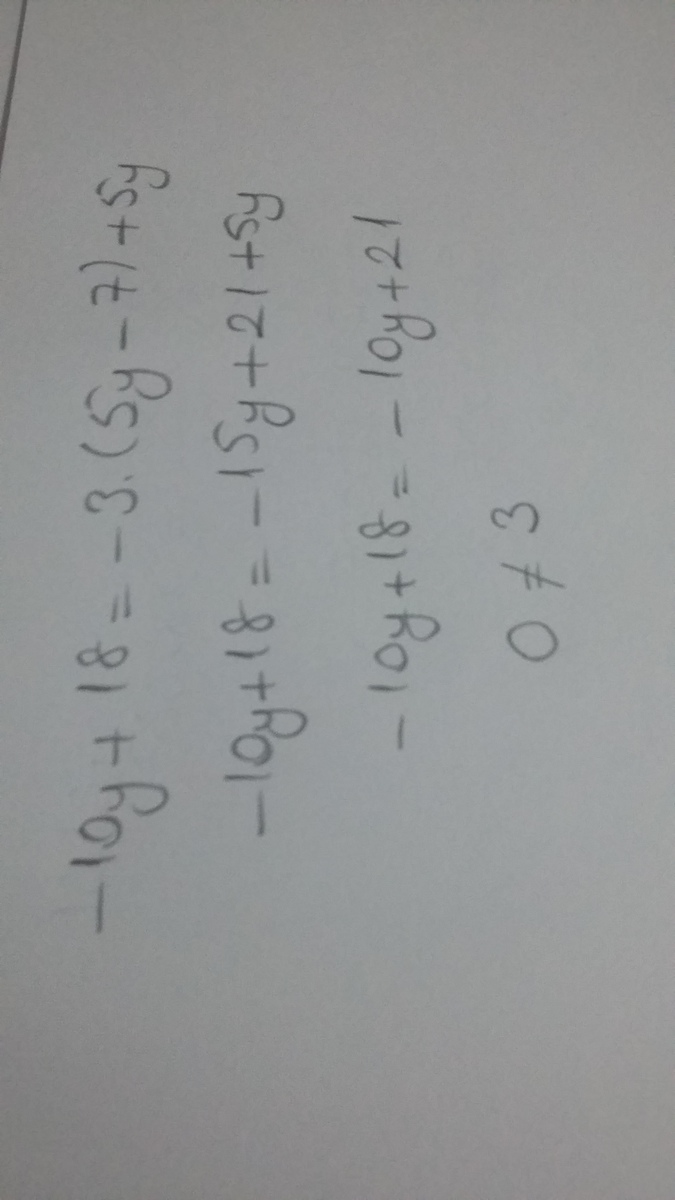 -10y + 18 = -3.(5y - 7) + 5y
-10y + 18 = -15y + 21 + 5y
-10y + 18 = -10y + 21
0 ≠ 3